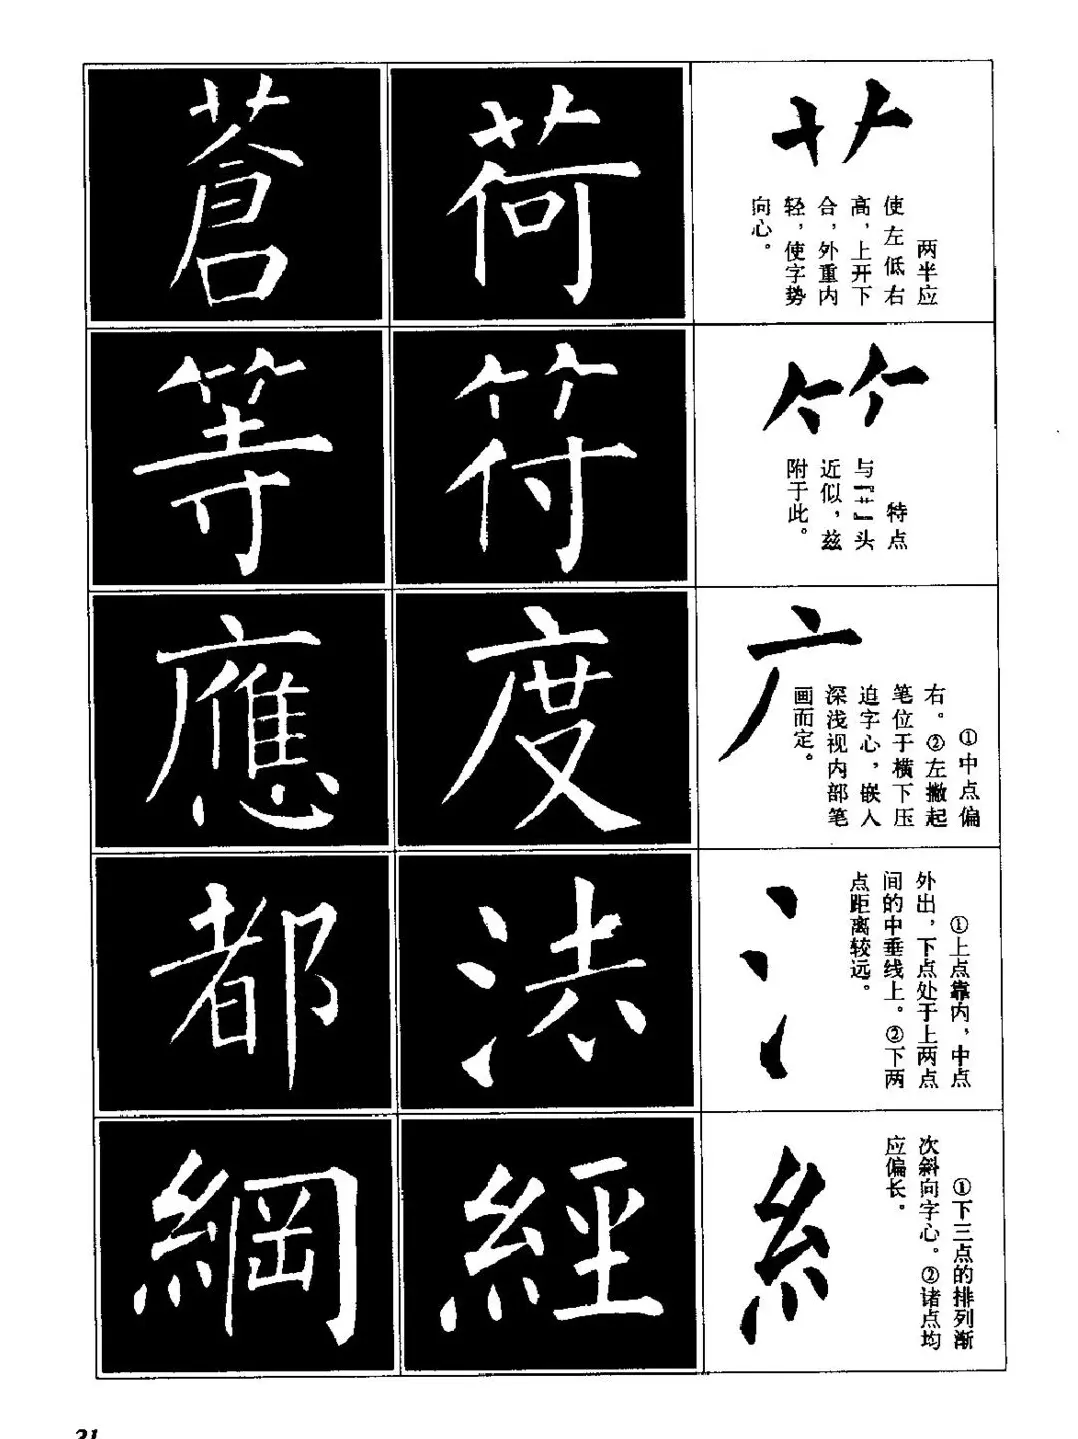 艹
两半应
使左低右
高，上开下
合，外重内
轻，使字势
向心。
荷
蒼
⺮
特点
与『艹』头
近似，兹
附于此。
符
等
广
①中点偏
右。②左撇起
笔位于横下压
迫字心，嵌入
深浅视内部笔
画而定。
度
應
氵
①上点靠内，中点
外出，下点处于上两点
间的中垂线上。②下两
点距离较远。
法
都
糹
①下三点的排列渐
次斜向字心。②诸点均
应偏长。
經
綱
21